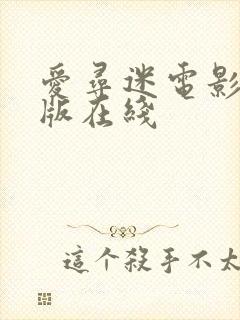 愛尋迷電影
版在綫
這个殺手不太